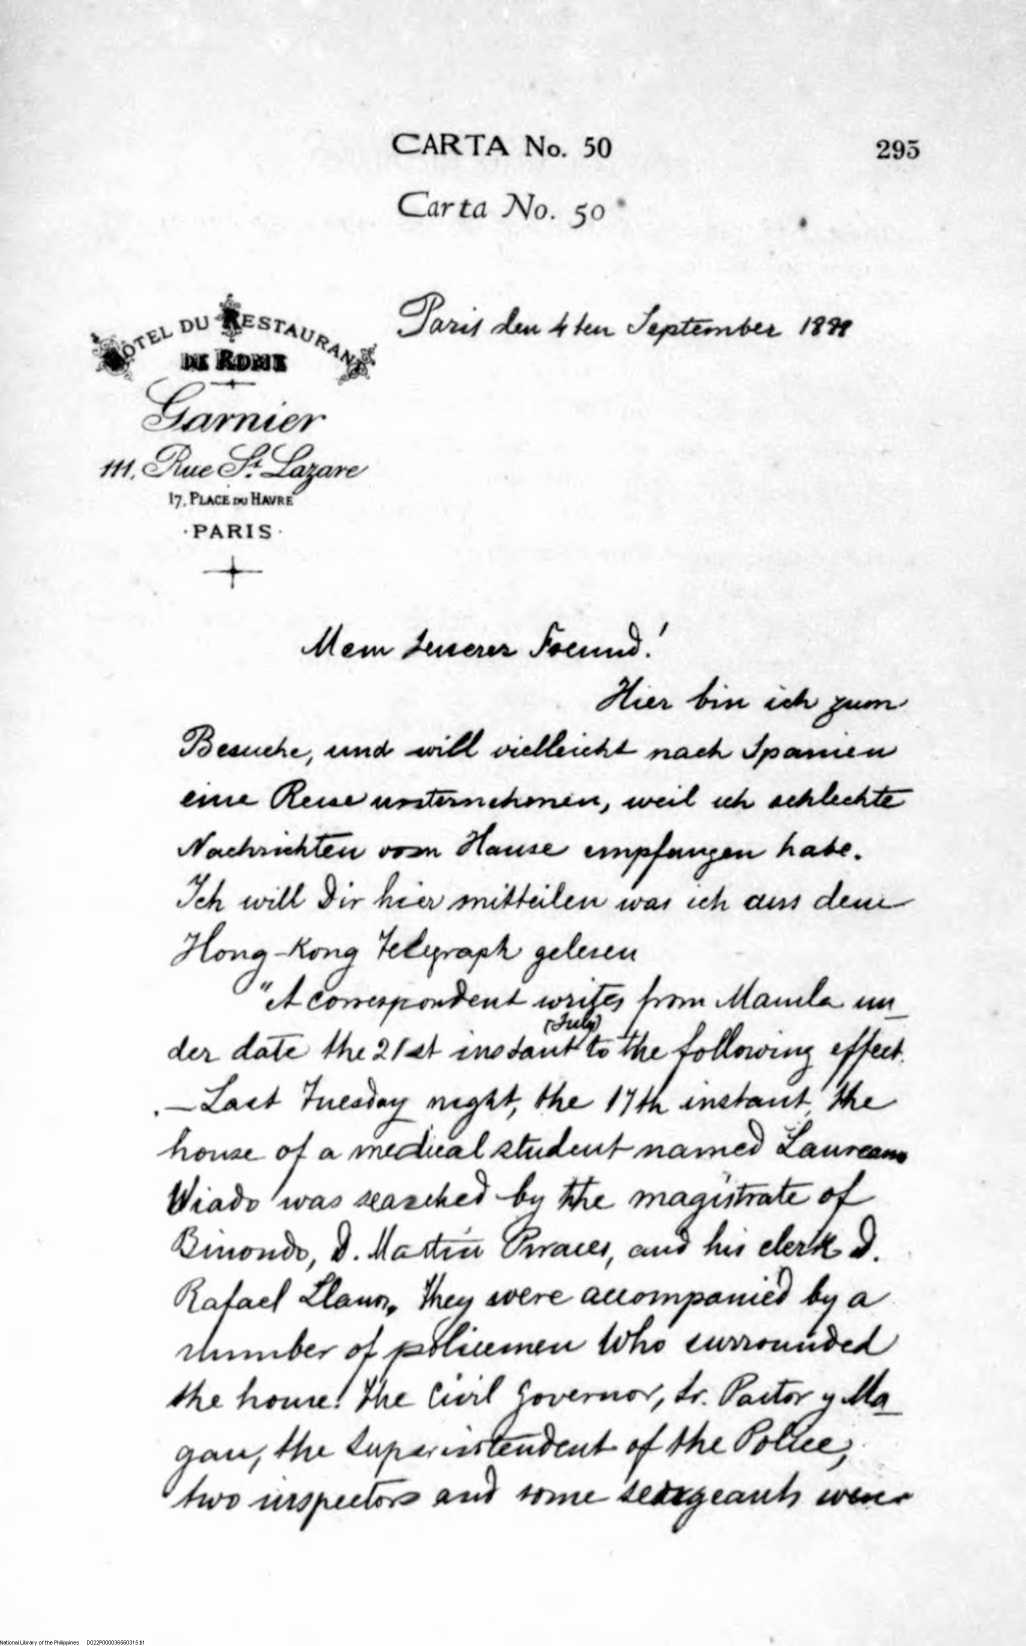 CARTA No. 50
295
Carta No. 50
HOTEL DU RESTAURANT
DE ROME
Garnier
111, Rue St. Lazare
17, PLACE DU HAVRE
·PARIS·
Paris den 4ten September 1888
Mein teuerer Freund!
Hier bin ich zum
Besuche, und will vielleicht nach Spanien
eine Reise unternehmen, weil ich schlechte
Nachrichten vom Hause empfangen habe.
Ich will Dir hier mitteilen was ich aus dem
Hong-Kong Telegraph gelesen
"A correspondent writes from Manila un_
(July)
der date the 21st instant to the following effect.
.—Last Tuesday night, the 17th instant, the
house of a medical student named Laureano
Viado was searched by the magistrate of
Binondo, D. Martín Piraces, and his clerk D.
Rafael Llanos, they were accompanied by a
number of policemen who surrounded
the house. The Civil Governor, Sr. Pastor y Ma_
gan, the Superintendent of the Police,
two inspectors and some sergeants were
National Library of the Philippines